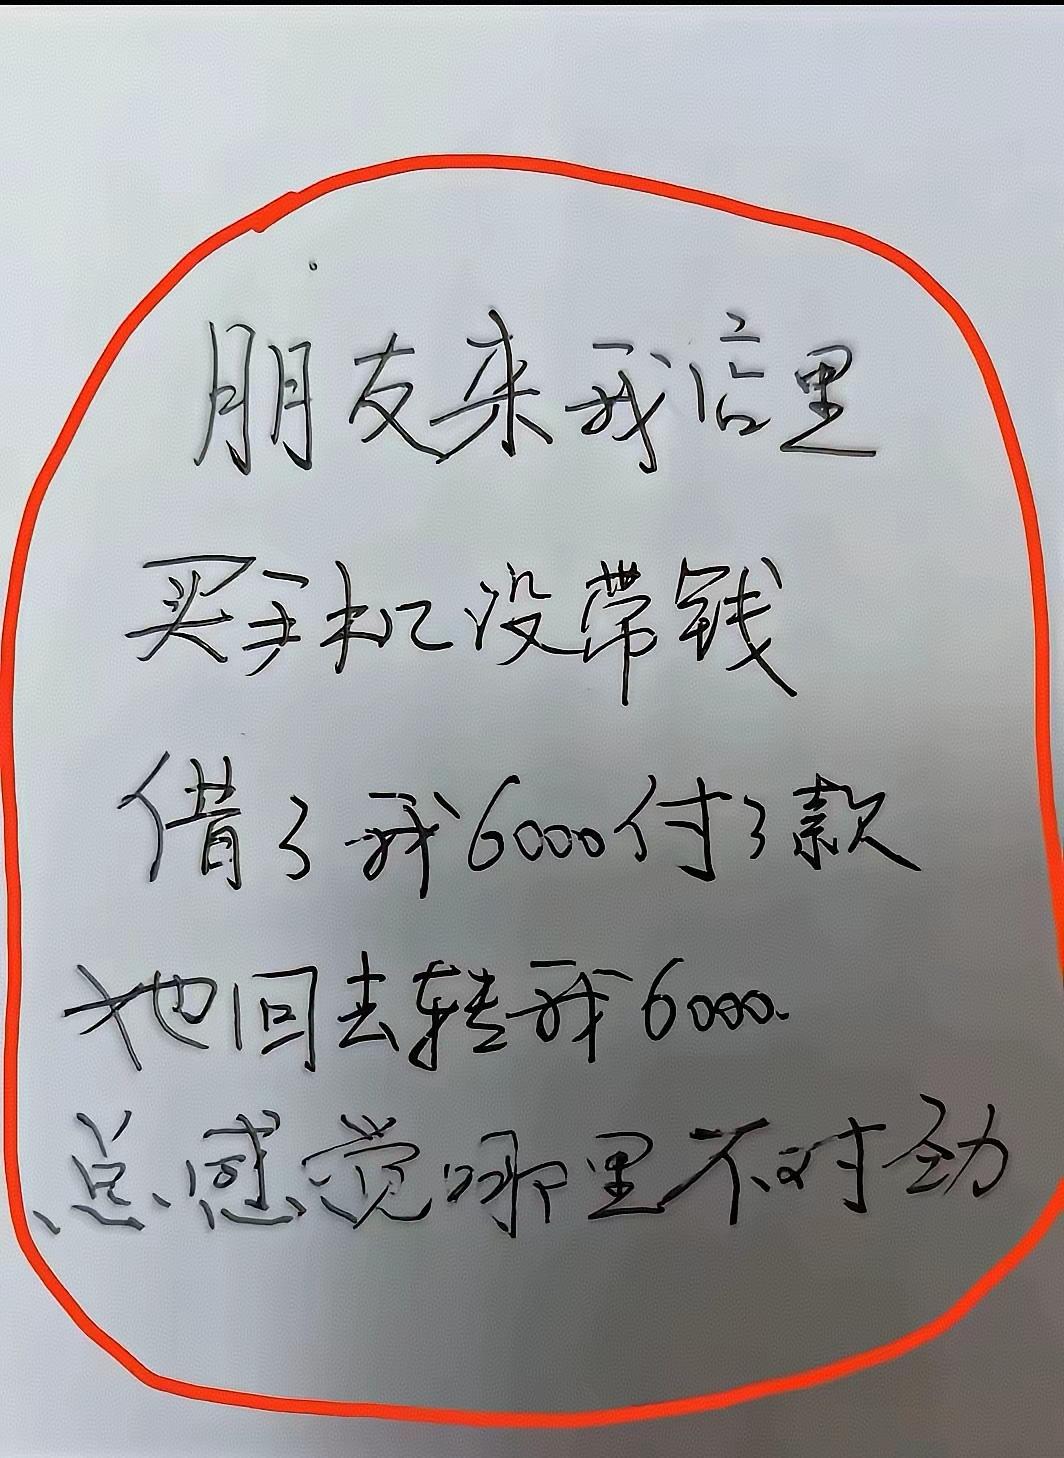 朋友来我店里
买手机没带钱
借了我6000付了款
她回去转我6000.
总感觉哪里不对劲